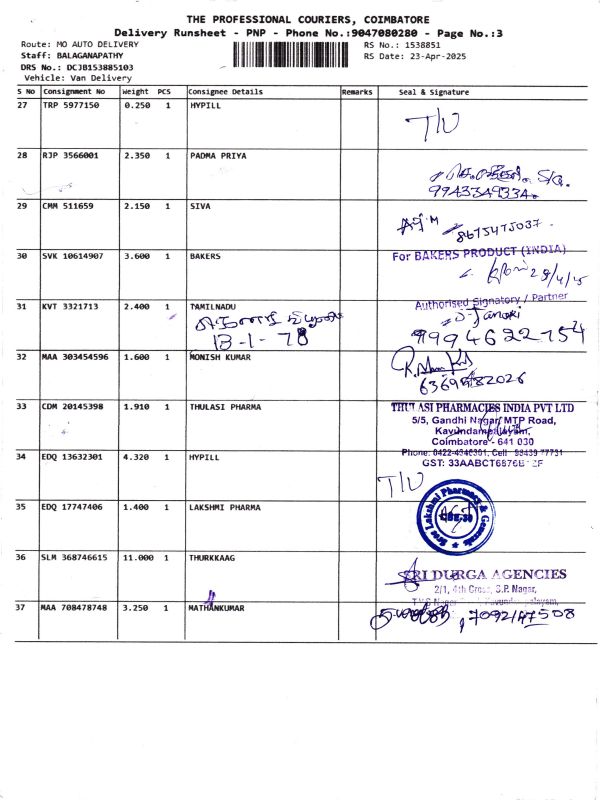 THE PROFESSIONAL COURIERS, COIMBATORE
Delivery Runsheet - PNP - Phone No.:9047080280 - Page No.:3
Route: MO AUTO DELIVERY RS No.: 1538851
Staff: BALAGANAPATHY RS Date: 23-Apr-2025
DRS No.: DCJB153885103
Vehicle: Van Delivery
S No Consignment No Weight PCS Consignee Details Remarks Seal & Signature
27 TRP 5977150 0.250 1 HYPILL
T/U
28 RJP 3566001 2.350 1 PADMA PRIYA
9943349334
29 CMM 511659 2.150 1 SIVA
8675475037
30 SVK 10614907 3.600 1 BAKERS For BAKERS PRODUCT (INDIA)
Authorised Signatory / Partner
31 KVT 3321713 2.400 1 TAMILNADU
13-1-78
32 MAA 303454596 1.600 1 MONISH KUMAR
33 CDM 20145398 1.910 1 THULASI PHARMA THULASI PHARMACIES INDIA PVT LTD
5/5, Gandhi Nagar, MTP Road,
Kavundampalayam,
Coimbatore - 641 030
34 EDQ 13632301 4.320 1 HYPILL
T/U
35 EDQ 17747406 1.400 1 LAKSHMI PHARMA Sree Lakshmi Pharmacy & Generals
36 SLM 368746615 11.000 1 THURKKAAG
SRI DURGA AGENCIES
2/1, 4th Cross, S.P. Nagar,
37 MAA 708478748 3.250 1 MATHANKUMAR